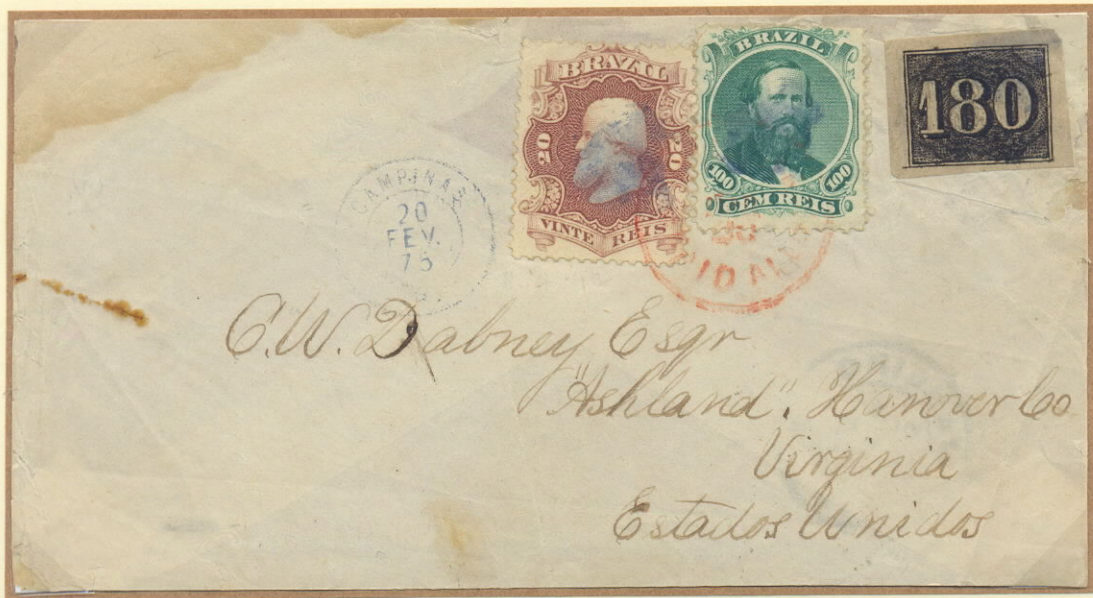 BRAZIL
20 20
VINTE REIS
BRAZIL
100 100
CEM REIS
180
CAMPINAS
20
FEV.
75
PAID ALL
C. W. Dabney Esqr
"Ashland". Hanover Co
Virginia
Estados Unidos